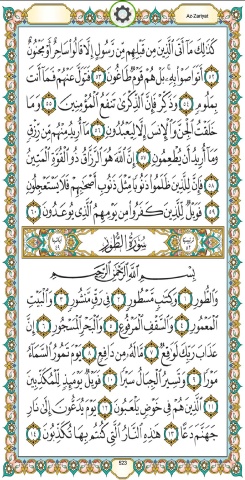 Az-Zariyat
كَذَٰلِكَ مَا أَتَى الَّذِينَ مِن قَبْلِهِم مِّن رَّسُولٍ إِلَّا قَالُوا سَاحِرٌ أَوْ مَجْنُونٌ
﴿٥٢﴾ أَتَوَاصَوْا بِهِ ۚ بَلْ هُمْ قَوْمٌ طَاغُونَ ﴿٥٣﴾ فَتَوَلَّ عَنْهُمْ فَمَا أَنتَ
بِمَلُومٍ ﴿٥٤﴾ وَذَكِّرْ فَإِنَّ الذِّكْرَىٰ تَنفَعُ الْمُؤْمِنِينَ ﴿٥٥﴾ وَمَا
خَلَقْتُ الْجِنَّ وَالْإِنسَ إِلَّا لِيَعْبُدُونِ ﴿٥٦﴾ مَا أُرِيدُ مِنْهُم مِّن رِّزْقٍ
وَمَا أُرِيدُ أَن يُطْعِمُونِ ﴿٥٧﴾ إِنَّ اللَّهَ هُوَ الرَّزَّاقُ ذُو الْقُوَّةِ الْمَتِينُ
﴿٥٨﴾ فَإِنَّ لِلَّذِينَ ظَلَمُوا ذَنُوبًا مِّثْلَ ذَنُوبِ أَصْحَابِهِمْ فَلَا يَسْتَعْجِلُونِ
﴿٥٩﴾ فَوَيْلٌ لِّلَّذِينَ كَفَرُوا مِن يَوْمِهِمُ الَّذِي يُوعَدُونَ ﴿٦٠﴾
سُورَةُ الطُّورِ
بِسْمِ اللَّهِ الرَّحْمَٰنِ الرَّحِيمِ
وَالطُّورِ ﴿١﴾ وَكِتَابٍ مَّسْطُورٍ ﴿٢﴾ فِي رَقٍّ مَّنشُورٍ ﴿٣﴾ وَالْبَيْتِ
الْمَعْمُورِ ﴿٤﴾ وَالسَّقْفِ الْمَرْفُوعِ ﴿٥﴾ وَالْبَحْرِ الْمَسْجُورِ ﴿٦﴾ إِنَّ
عَذَابَ رَبِّكَ لَوَاقِعٌ ﴿٧﴾ مَّا لَهُ مِن دَافِعٍ ﴿٨﴾ يَوْمَ تَمُورُ السَّمَاءُ
مَوْرًا ﴿٩﴾ وَتَسِيرُ الْجِبَالُ سَيْرًا ﴿١٠﴾ فَوَيْلٌ يَوْمَئِذٍ لِّلْمُكَذِّبِينَ
﴿١١﴾ الَّذِينَ هُمْ فِي خَوْضٍ يَلْعَبُونَ ﴿١٢﴾ يَوْمَ يُدَعُّونَ إِلَىٰ نَارِ
جَهَنَّمَ دَعًّا ﴿١٣﴾ هَٰذِهِ النَّارُ الَّتِي كُنتُم بِهَا تُكَذِّبُونَ ﴿١٤﴾
523